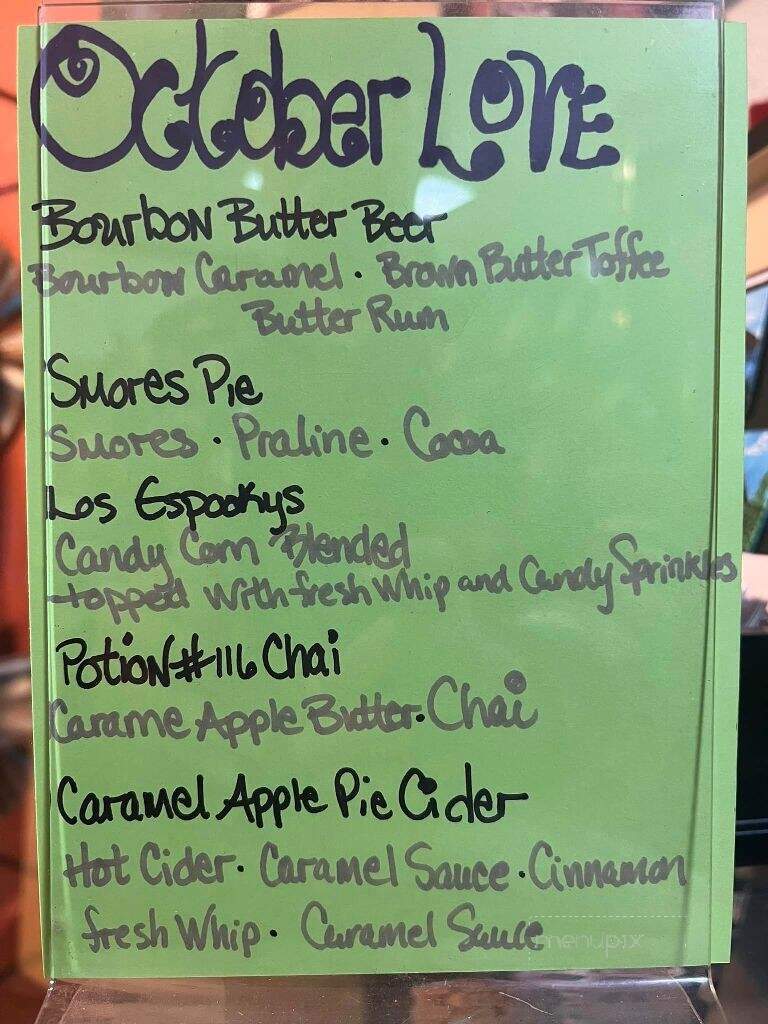 October Love
Bourbon Butter Beer
Bourbon Caramel · Brown Butter Toffee
Butter Rum
Smores Pie
Smores · Praline · Cocoa
Los Espookys
Candy Corn Blended
topped with fresh Whip and Candy Sprinkles
Potion #116 Chai
Carame Apple Butter · Chai
Caramel Apple Pie Cider
Hot Cider · Caramel Sauce · Cinnamon
fresh Whip · Caramel Sauce
menupix